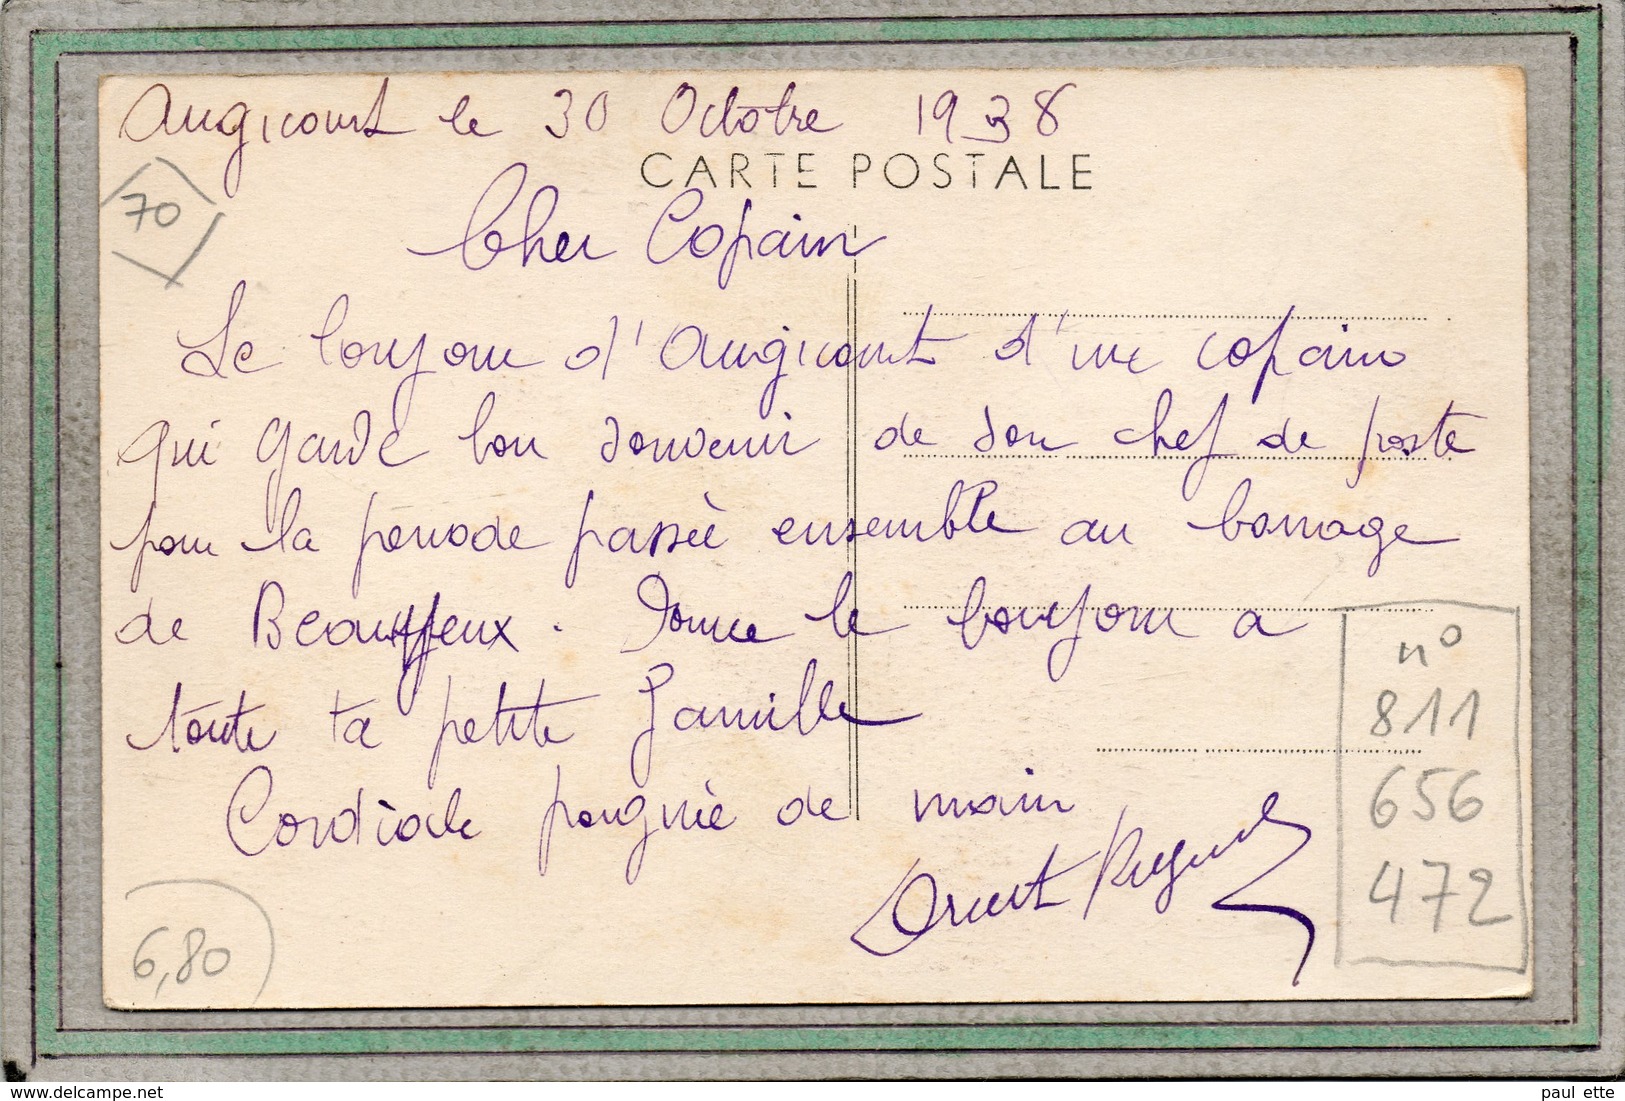 Augicourt le 30 Octobre 1938
CARTE POSTALE
70
Cher Copain
Le bonjour d'Augicourt d'un copain
qui garde bon souvenir de son chef de poste
pour la période passée ensemble au barrage
de Beauffeux. Donne le bonjour a
toute ta petite famille
Cordiale poignée de main
n°
811
656
472
6,80
paul ette